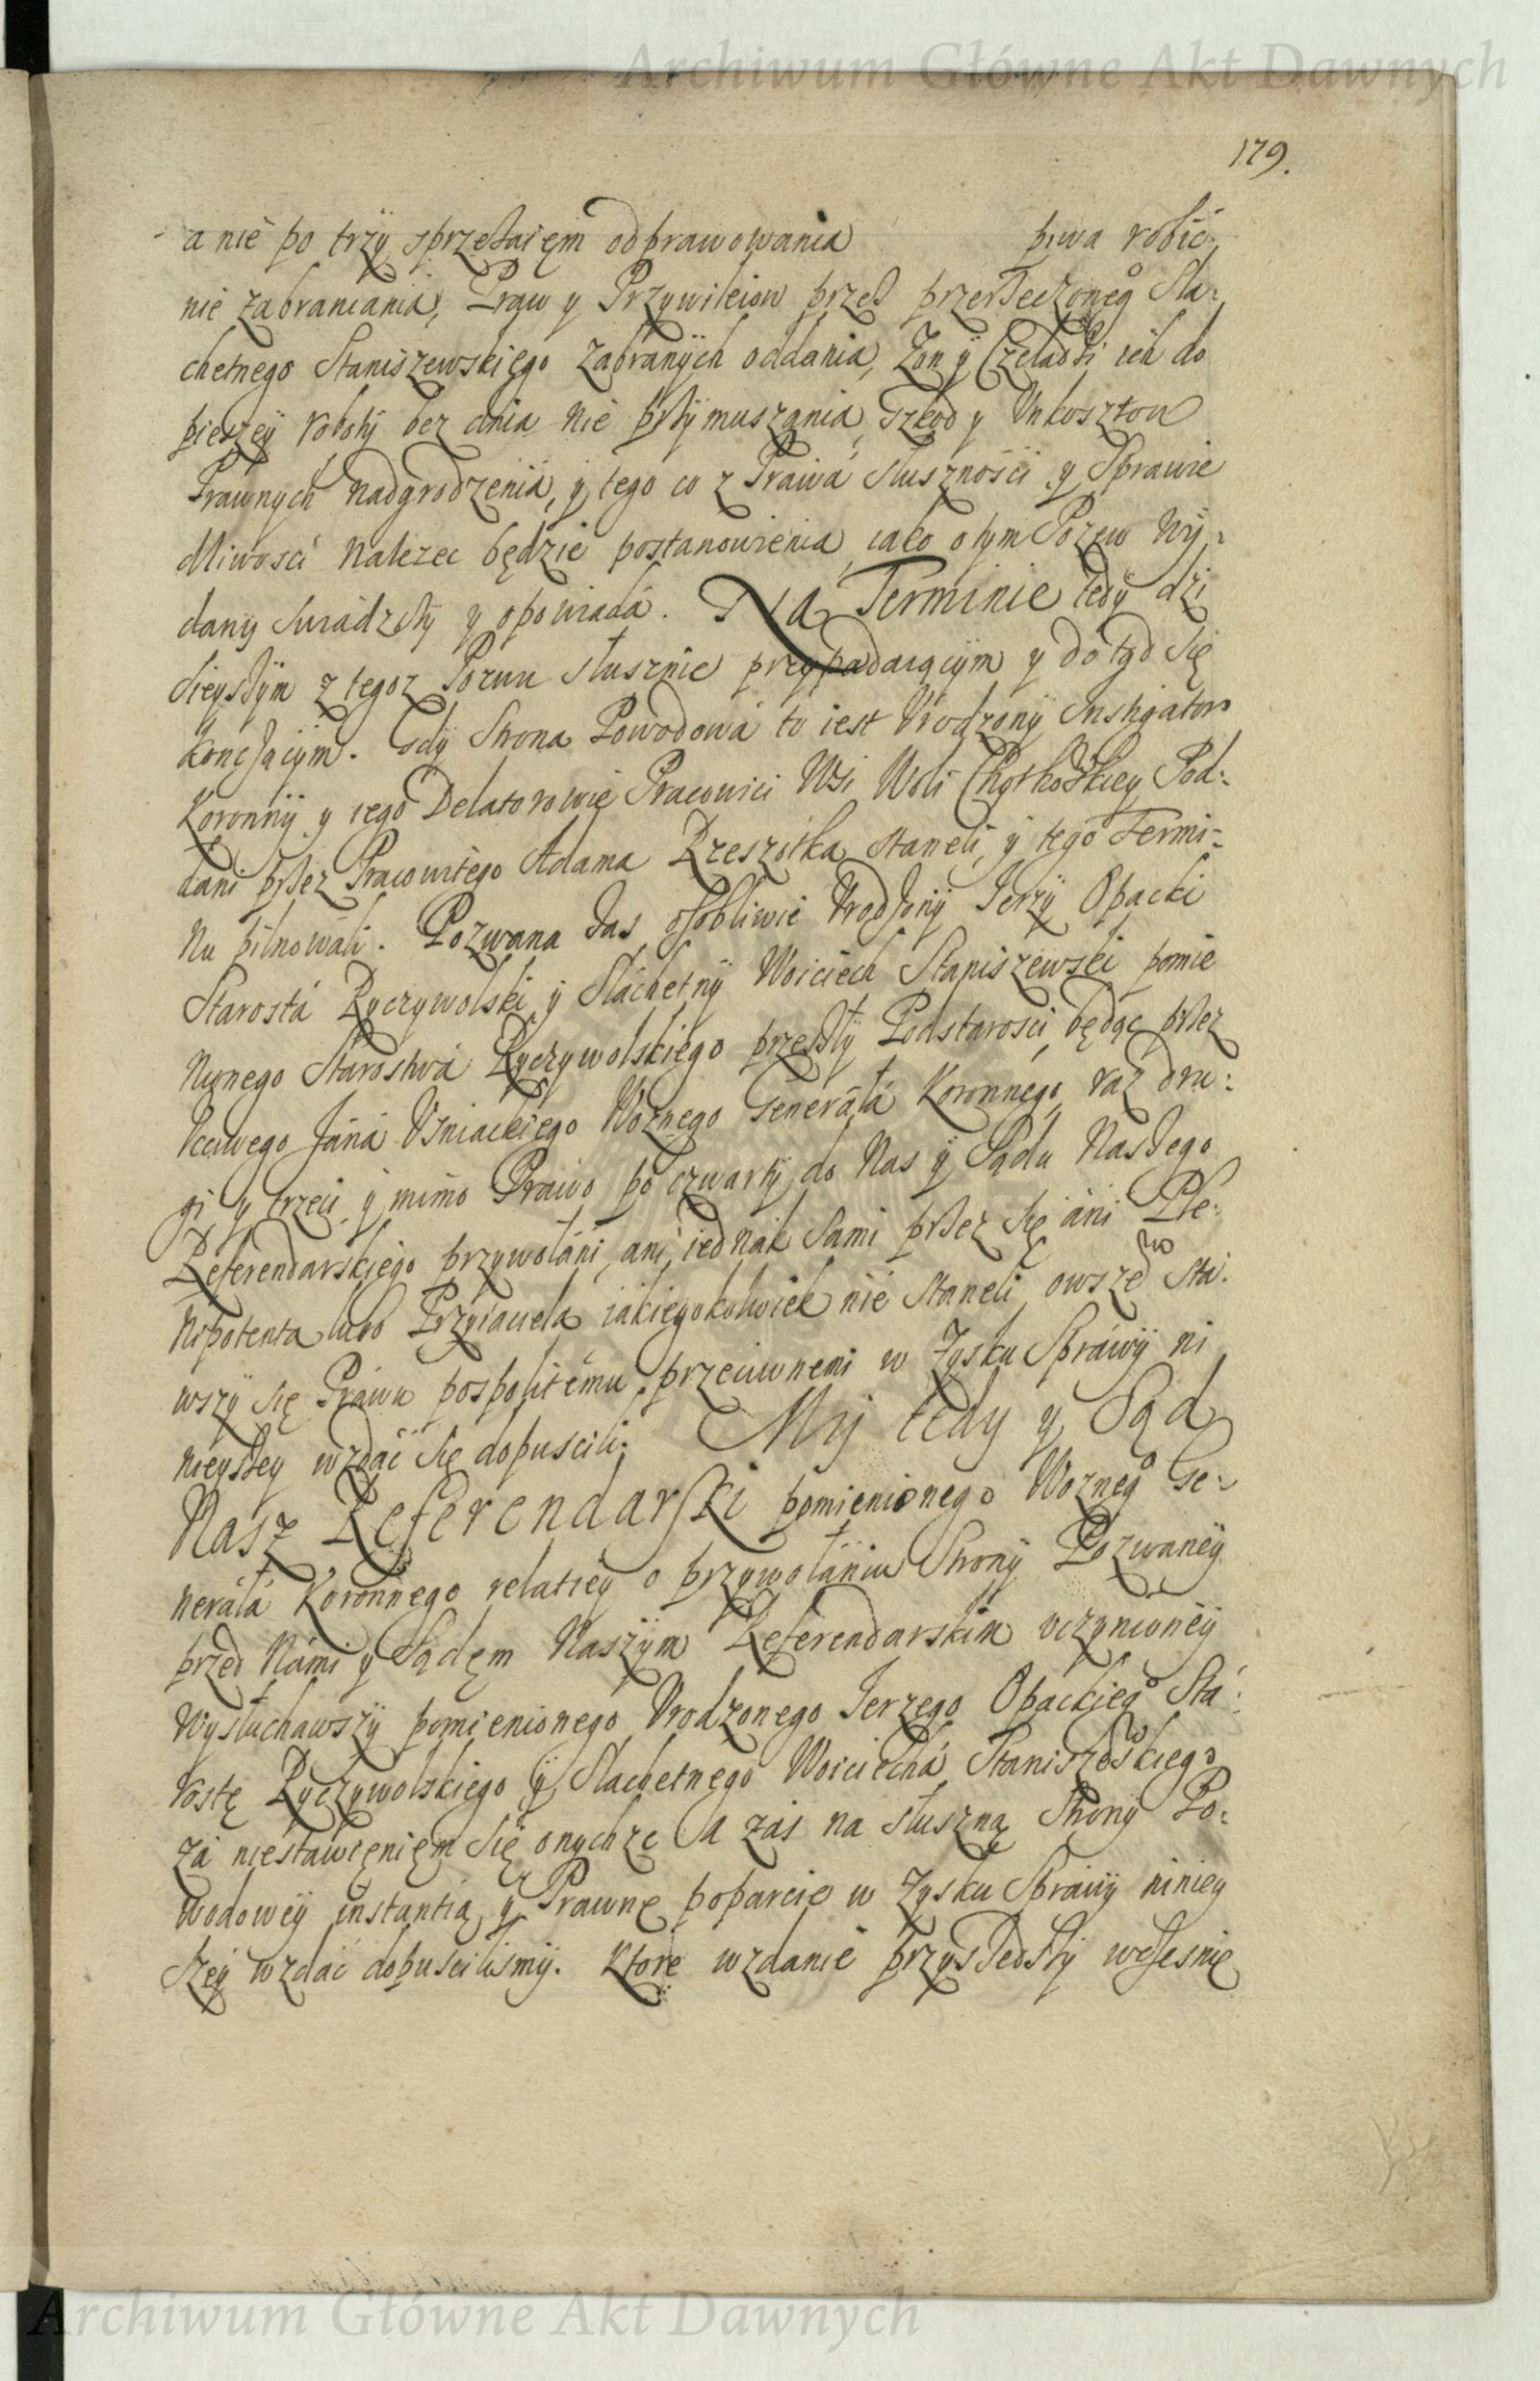 Archiwum Główne Akt Dawnych
179.
a nie po trzy sprzężaiem odprawowania piwa robić
nie zabraniania, Praw y Przywileiow przez przerzeczoneg° Sla:
chetnego Staniszewskiego zabranych oddania, Zon y Czeladzi ich do
pieszey roboty bez dnia nie przymuszania, szkod y Unkosztow
Prawnych nadgrodzenia, y tego co z Prawa Słusznośći y Sprawie
dliwośći nalezec będzie postanowienia, iako o tym Pozew wy:
dany swiadczy y opowiada. Na Terminie tedy dzi
sieyszym z tegoz Pozwu słusznie przypadaiącym y do tąd się
konczącym. Gdy Strona Powodowa to iest Urodzony Instigator
Koronny y iego Delatorowie Pracowici Wsi Woli Chotkoskiey Pod:
dani przez Pracowitego Adama Rzeszotka staneli, y tego Termi:
nu pilnowali. Pozwana zas osobliwie Urodzony Jerzy Opacki
Starosta Ryczywolski y Slachetny Woiciech Staniszewski pomie
nionego Starostwa Ryczywolskiego przeszły Podstarosci, będąc przez
Uccziwego Jana Usniackiego Woznego Generała Koronnego, raz dru:
gi y trzeci y mimo Prawo po czwarty do Nas y Sądu Naszego
Referendarskiego przywołani, ani iednak sami przez się ani Ple:
nipotenta lubo Przyiaciela iakiegokolwiek nie staneli, owszē sta:
wszy się Prawu pospolitemu przeciwnemi w Zysku Sprawy ni
nieyszey wzdać się dopuscili. My tedy y Sąd
Nasz Referendarski pomienionego Wozneg° Ge:
nerała Koronnego relatiey o przywołaniu Strony Pozwaney
przed Nami y Sądem Naszym Referendarskim uczynioney
wysłuchawszy pomienionego Urodzonego Jerzego Opackieg° Sta:
rostę Ryczywolskiego y Slachetnego Woiciecha Staniszewskiego
za niestawieniem się onychze a zas na słuszną Strony Po:
wodowey instantią y Prawne poparcie w Zysku Sprawy niniey
szey wzdać dopuscilismy. Ktore wzdanie przyszedszy wczesnie
Archiwum Główne Akt Dawnych